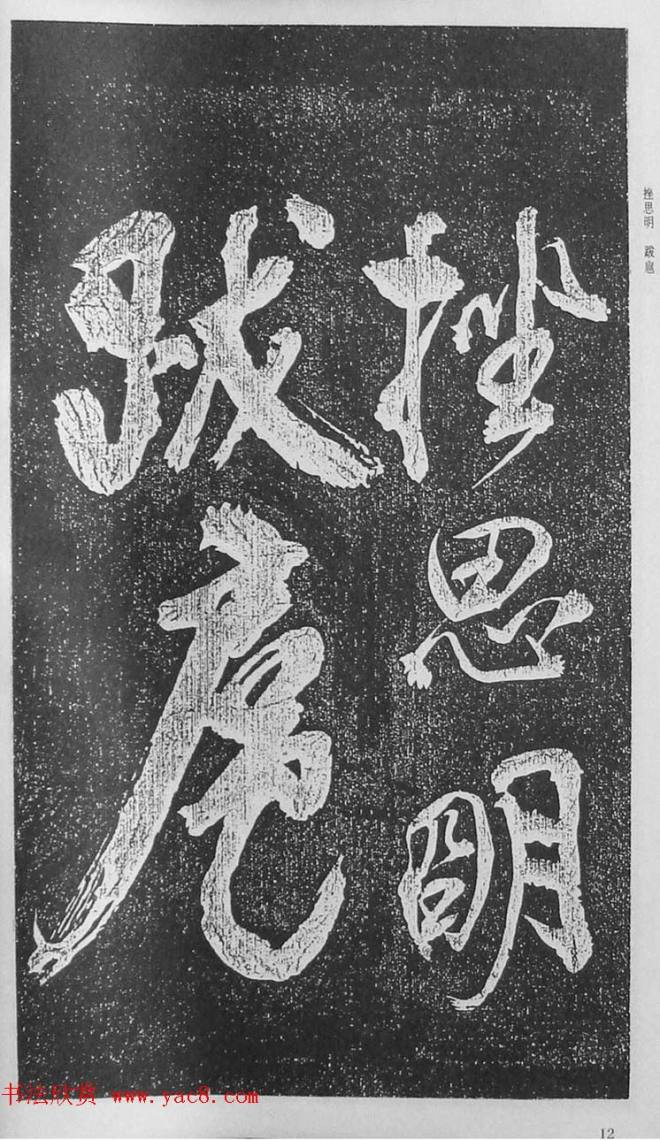 挫思明
跋扈
挫思明　跋扈
书法欣赏 www.yac8.com
12